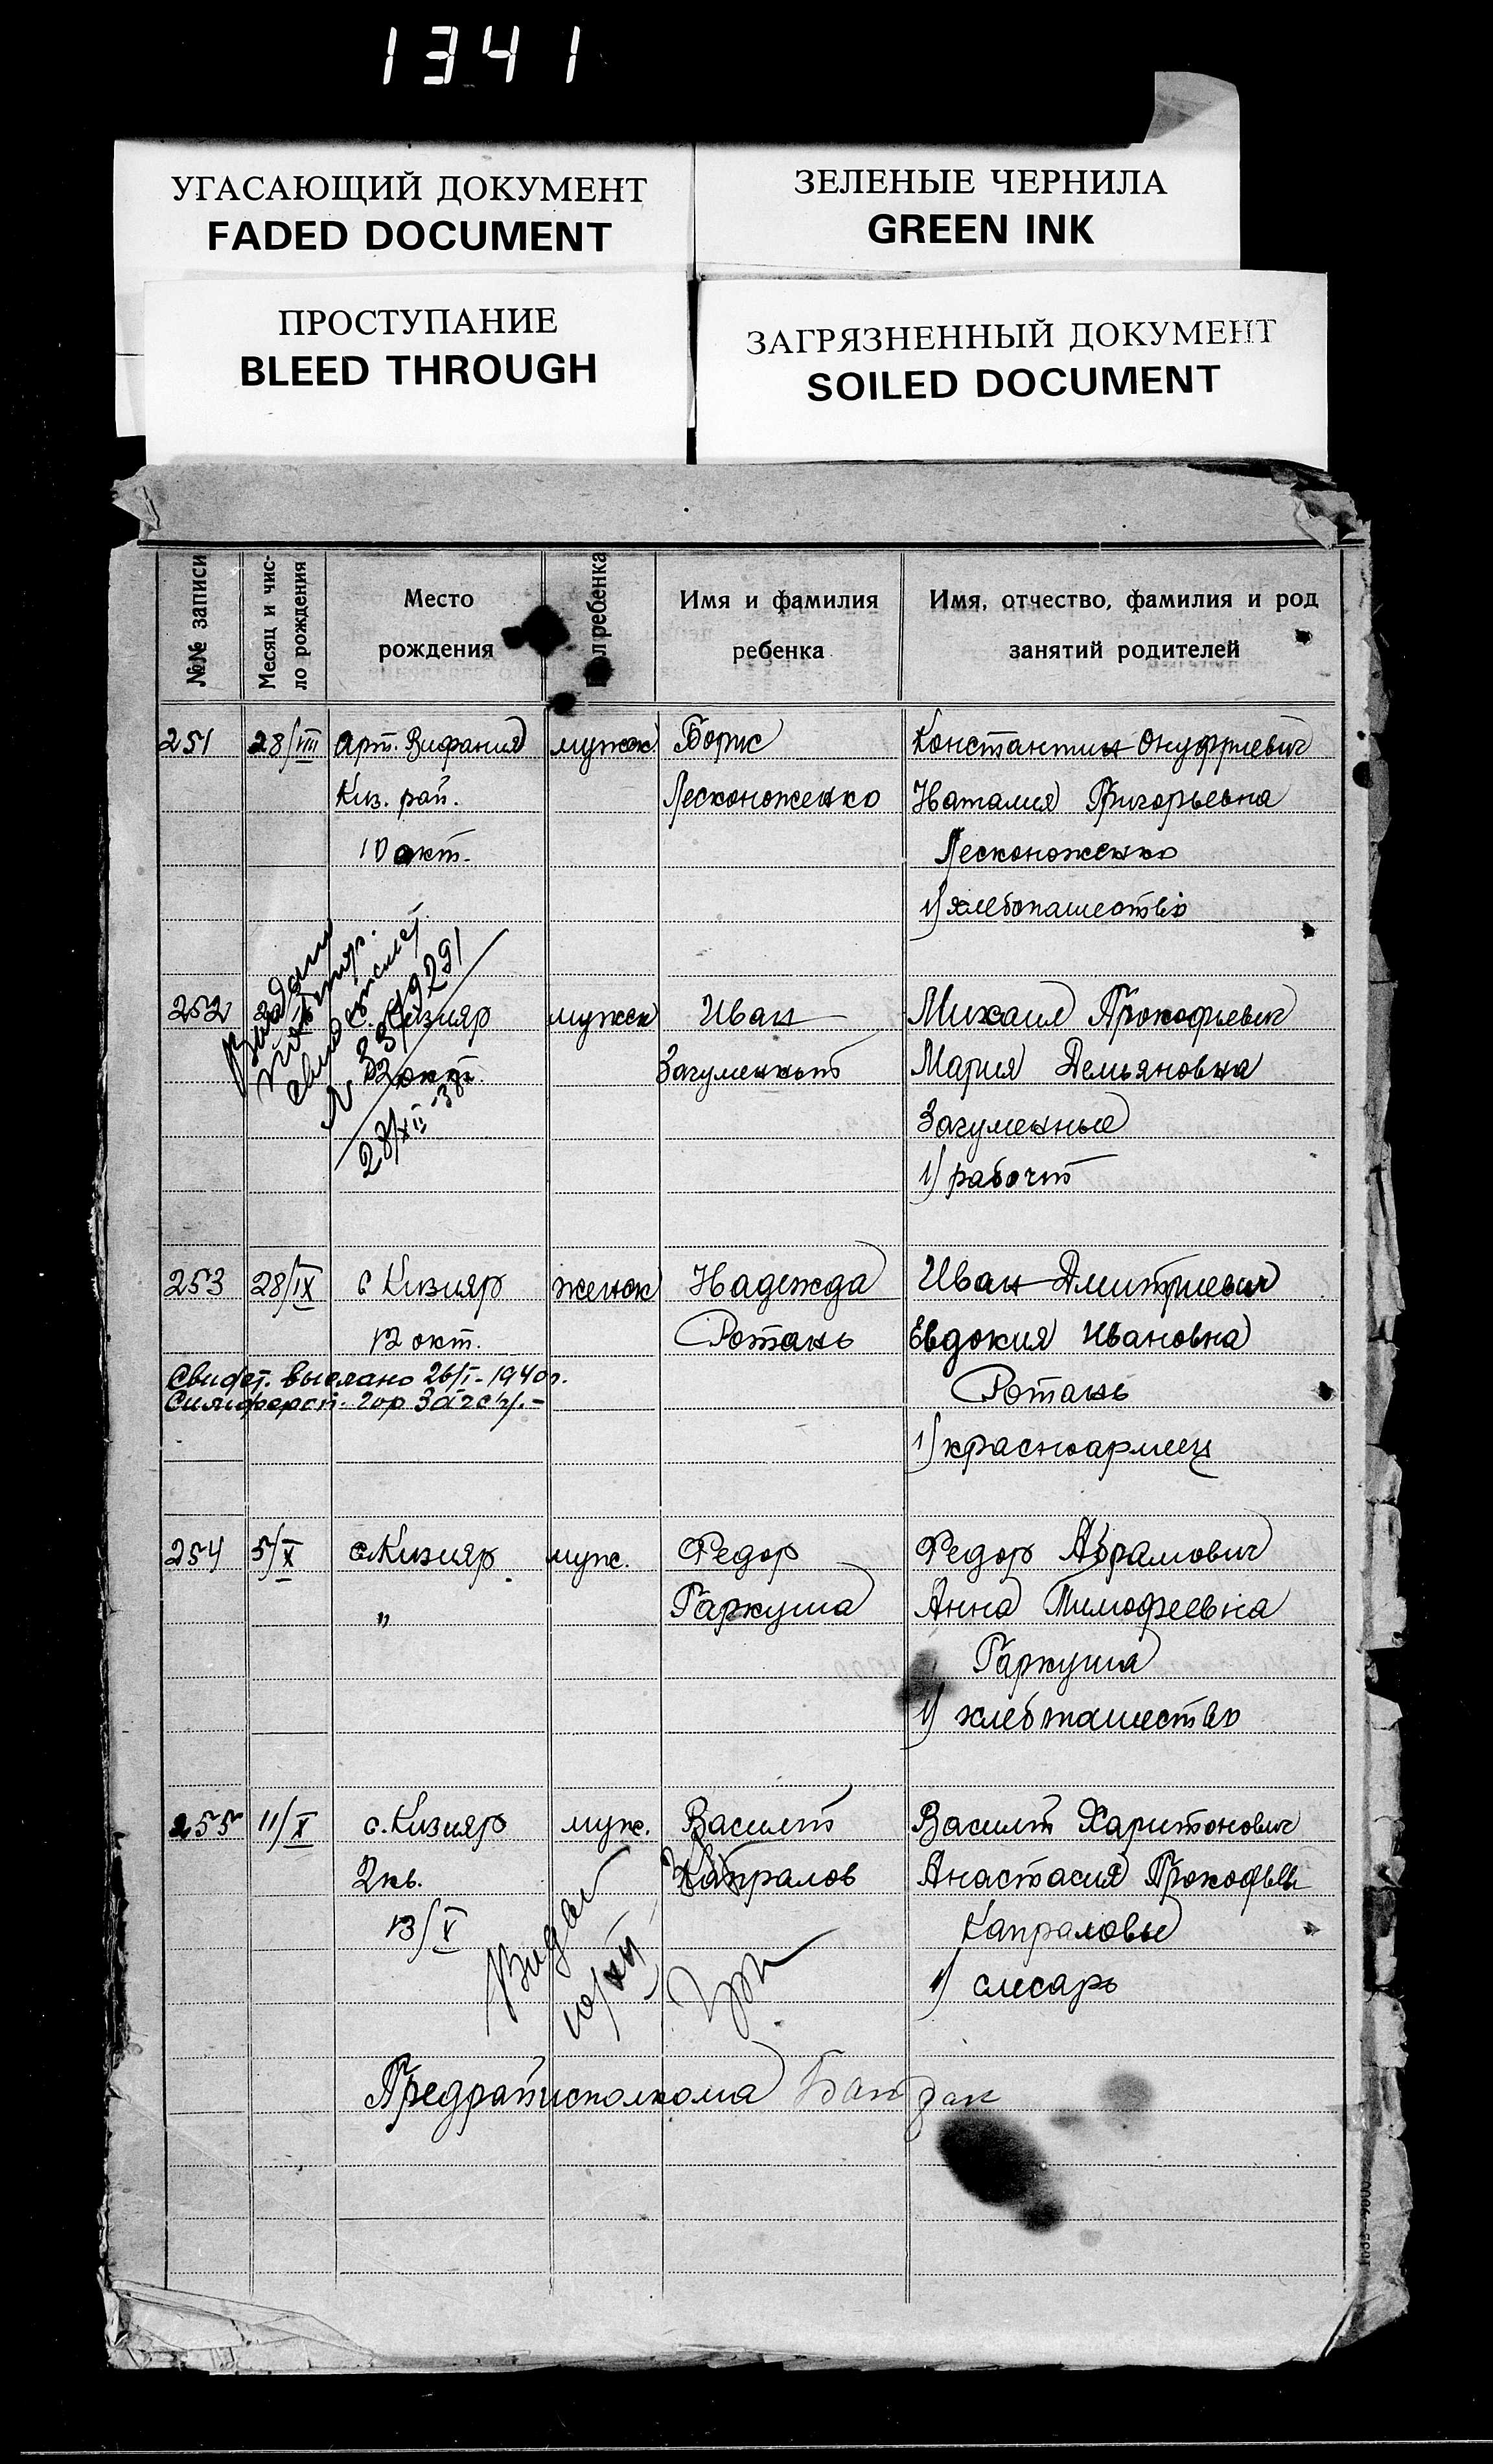 1341
УГАСАЮЩИЙ ДОКУМЕНТ
FADED DOCUMENT
ЗЕЛЕНЫЕ ЧЕРНИЛА
GREEN INK
ПРОСТУПАНИЕ
BLEED THROUGH
ЗАГРЯЗНЕННЫЙ ДОКУМЕНТ
SOILED DOCUMENT
№№ записи
Месяц и чис-
ло рождения
Место
рождения
Пол ребенка
Имя и фамилия
ребенка
Имя, отчество, фамилия и род
занятий родителей
251 28/VIII Арт. Зифания мужск Борис Константин Онуфриевич
Киз. рай. Лесконоженко Наталия Григорьевна
10 окт. Лесконоженко
1) хлебопашество
252 с. Кизияр мужск Иван Михаил Прокофьевич
окт. Загуменный Мария Демьяновна
Загуменные
1) рабочий
Видано
повтор.
свидетел
28/XII-38
253 28/IX с Кизияр женск Надежда Иван Дмитриевич
12 окт. Ротань Евдокия Ивановна
Свидет. выслано 26/I-1940г.
Симфероп. гор Загсу.-
Ротань
1) красноармеец
254 5/X с.Кизияр муж. Федор Федор Абрамович
" Гаркуша Анна Тимофеевна
Гаркуша
1) хлебопашество
255 11/X с. Кизияр муж. Василий Василий Харитонович
2 кв. Капралов Анастасия Прокофьев
13/X Капраловы
1) слесарь
Видан
10/XII
Предрайисполкома